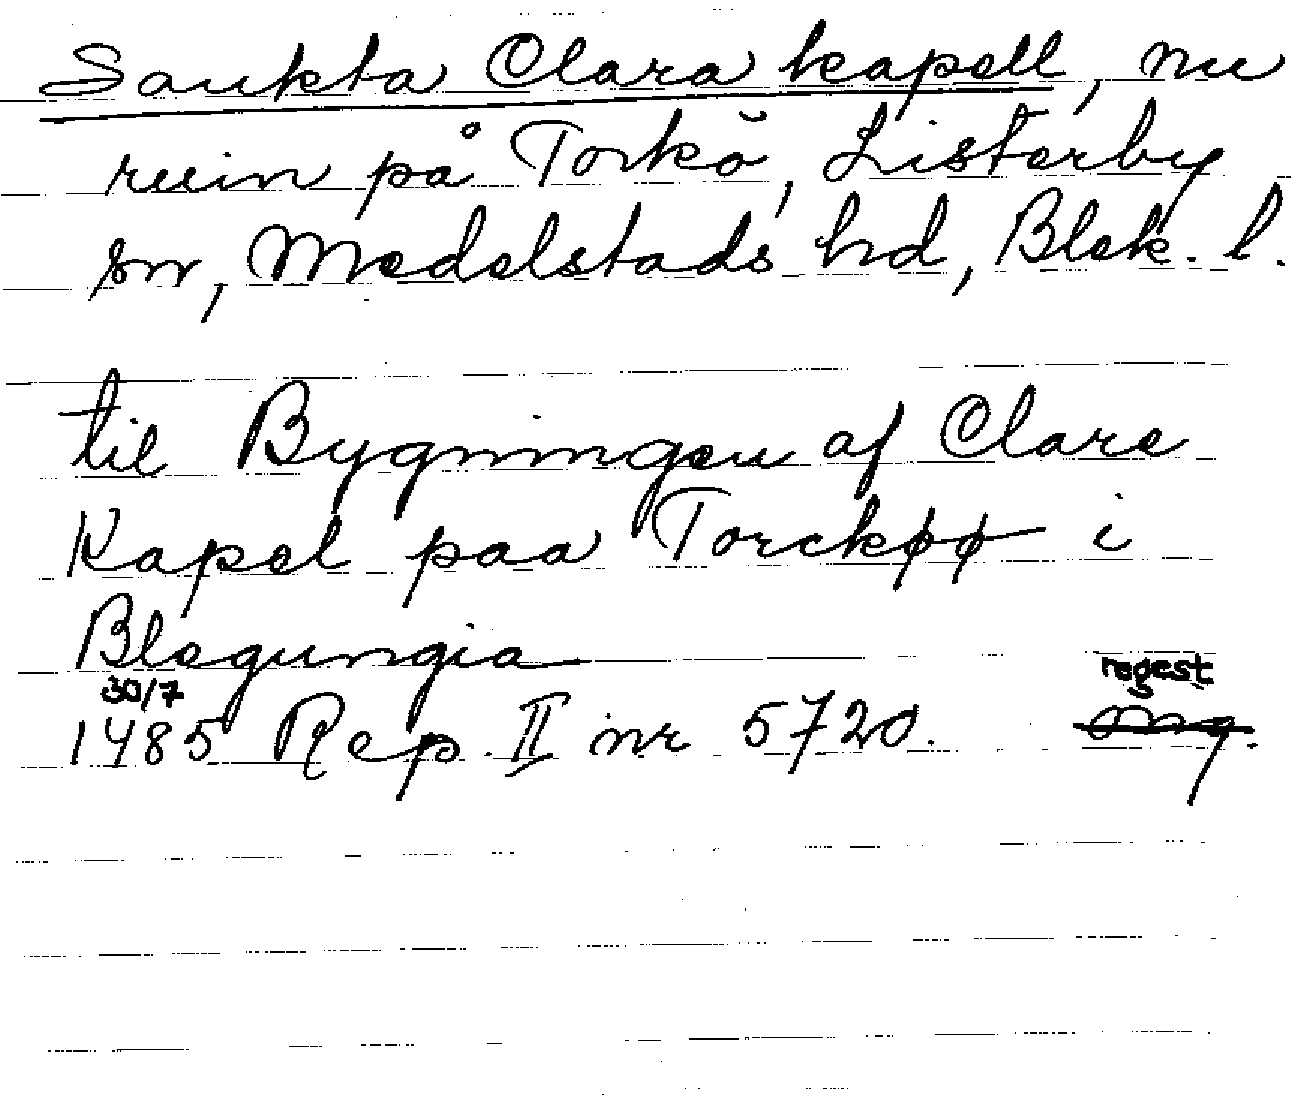 Sankta Clara kapell, nu
ruin på Torkö, Listerby
sn, Medelstads hd, Blek. l.
til Bygningen af Clare
Kapel paa Torckøø i
Blegungia
30/7 regest
1485 Rep. II nr 5720.